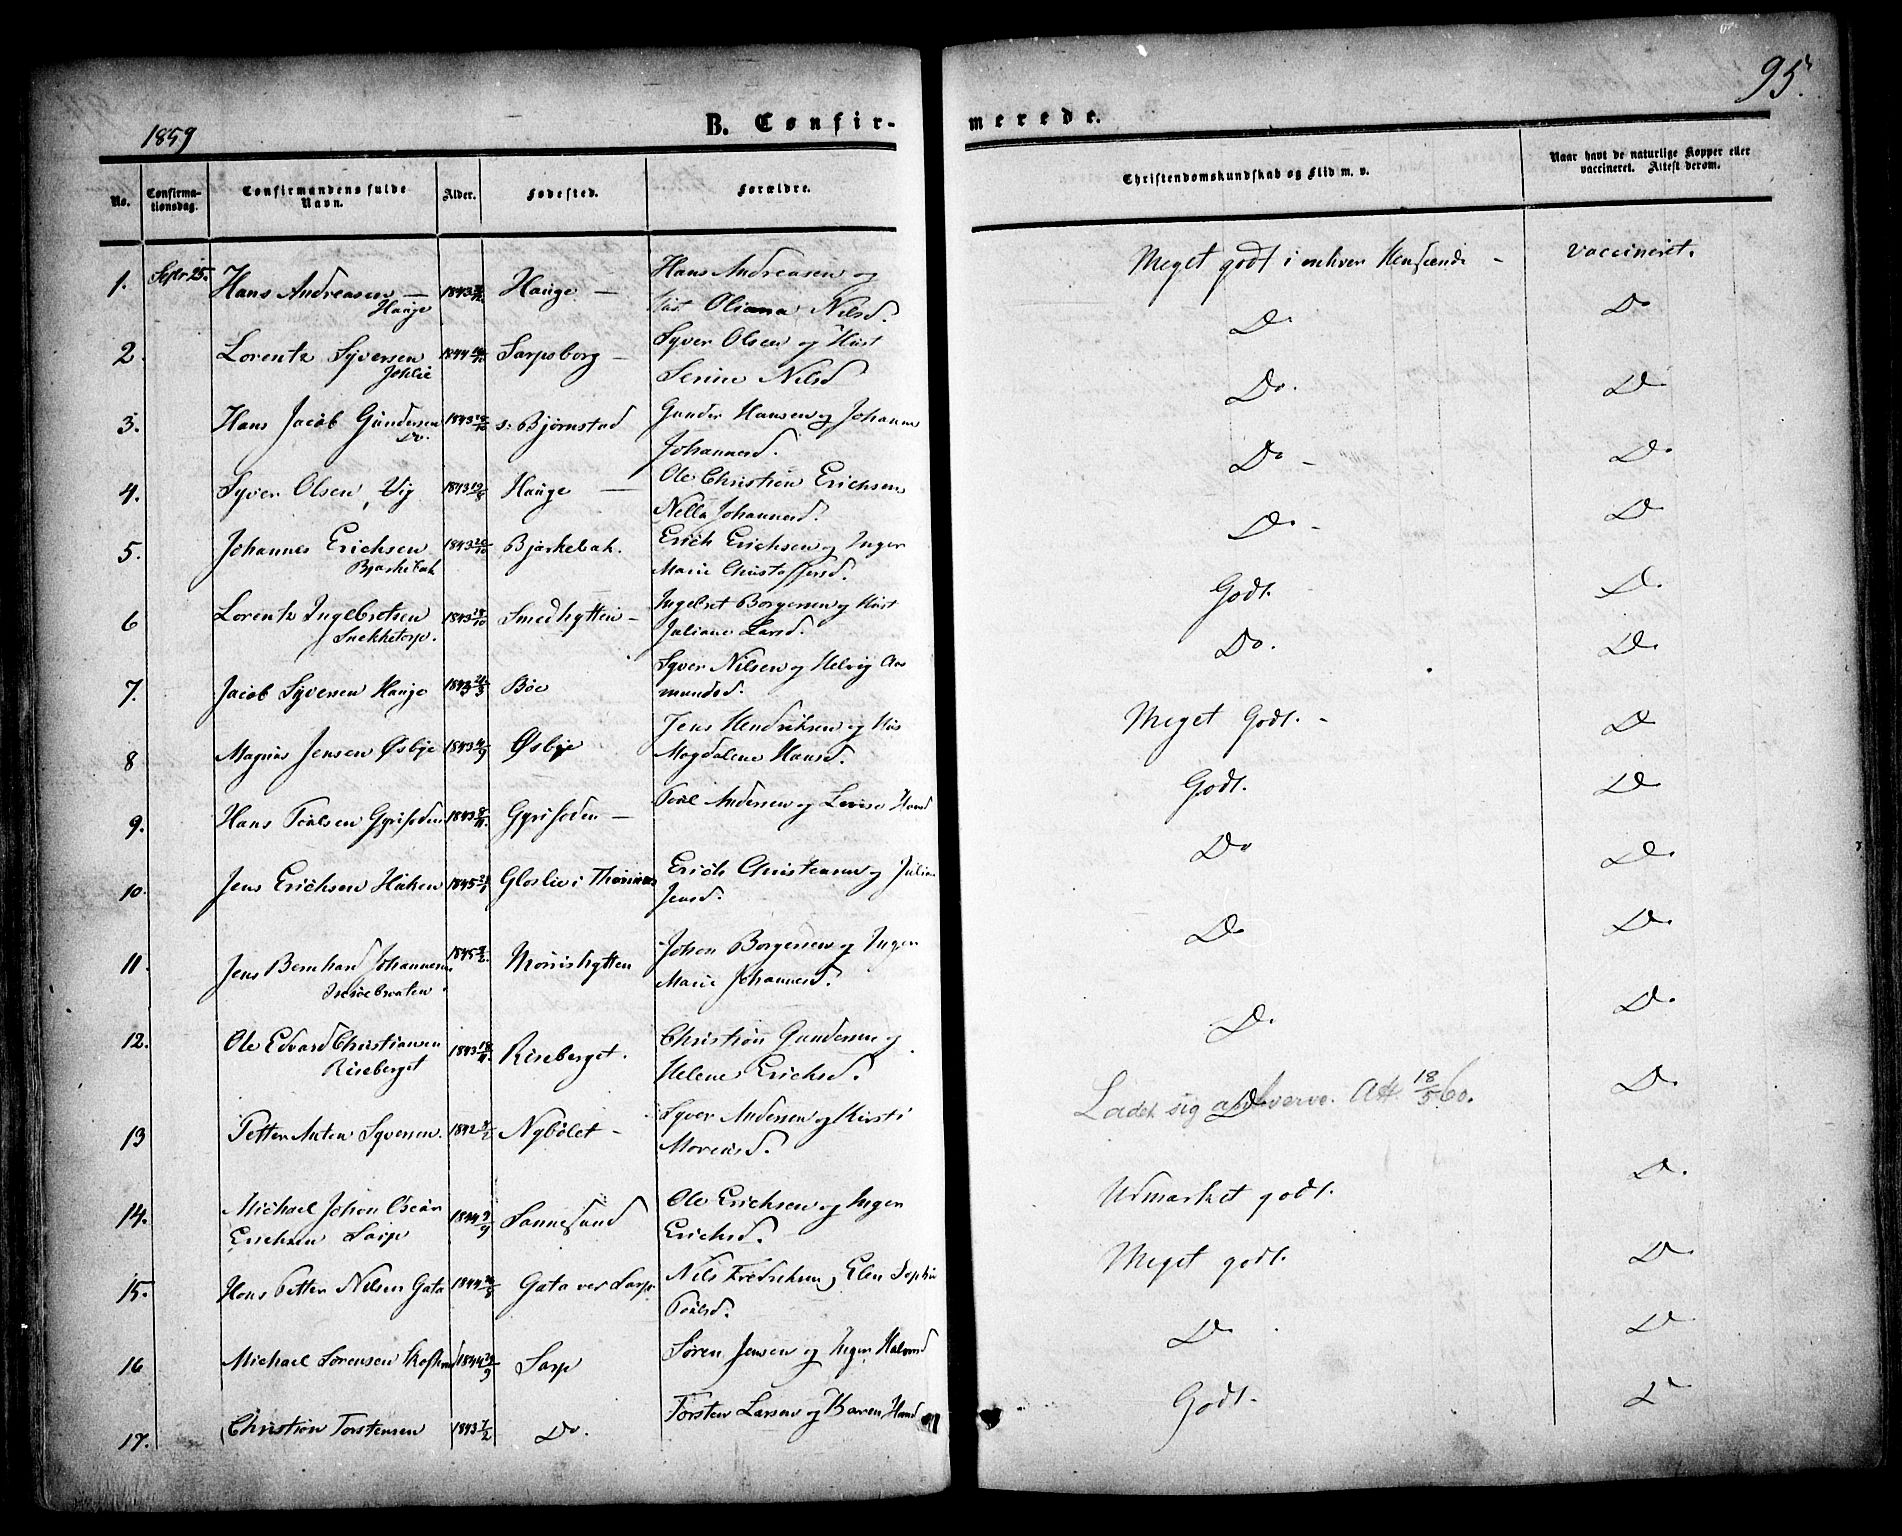 95.
1859
B. Confirmerede.
No.
Confirmationsdag.
Confirmandens fulde Navn.
Alder.
Fødested.
Forældre.
Christendomskundskab og Flid m. v.
Naar havt de naturlige Kopper eller vaccineret. Attest derom.
1. Septr 25. Hans Andreasen — 1843 Hauge — Hans Andreasen og
Hauge Oliana Nilsd.
Meget godt i enhver Henseende - vaccineret.
2. Lorentz Syversen 1844 Sarpsborg — Syver Olsen og Hust
Serine Nilsd
Do. Do
3. Hans Jacob Gundersen 1843 s: Bjørnstad Gunder Hansen og Johanne
Do. Johannesd.
Do. Do
4. Syver Olsen Vig 1843 Hauge — Ole Christian Erichsen
Nella Johannesd.
Do - Do.
5. Johannes Erichsen 1843 Bjørkebak. Erich Erichsen og Inger
Bjørkebak Marie Christoffersd.
Do. - Do.
6 Lorentz Ingelbretsen 1843 Smedhytten — Ingelbret Borgersen og Hust
Snekketorp. Juliane Larsd.
Godt. Do.
7. Jacob Syversen Hauge 1843 Bøe Syver Nilsen og Helvig Aas
mundsd.
Do. Do.
8 Magnus Jensen Øsbye 1843 Øsbye Jens Hendriksen og Hus
Magdalene Hansd.
Meget Godt. - Do
9. Hans Poulsen 1843 Poul Andersen og Lovise Hansd
Godt. Do.
10. Jens Erichsen Haken 1845 Erich Christensen og Julia
Jensd.
Do Do.
11. Jens Bernhard Johannesen 1845 Johan Borgersen og Inger
Marie Johannesd.
Do. Do.
12. Ole Edvard Christiansen 1843 Riseberget. Christian Gundersen og
Riseberget Helene Erichsd.
Do. Do.
13 Petter Anton Syversen. 1842 Nybølet — Syver Andersen og Kirsti
Morensd.
Do
Ladet sig Att. 18/5 60. Do.
14. Michael Johan Oscar 1844 Sannesund Ole Erichsen og Inger
Erichsen Sarp Erichsd.
Udmærket godt. Do.
15. Hans Petter Nilsen Gata 1844 Gata ved Sarp Nils Fredriksen og Elen Sophie
Poulsd.
Meget godt. Do
16 Michael Sørensen 1844 Sarp Søren Jensen og Inger Halvorsd
Do. Do
17. Christian Torstensen 1843 Do. Torsten Larsen og Karen Hansd
Godt.